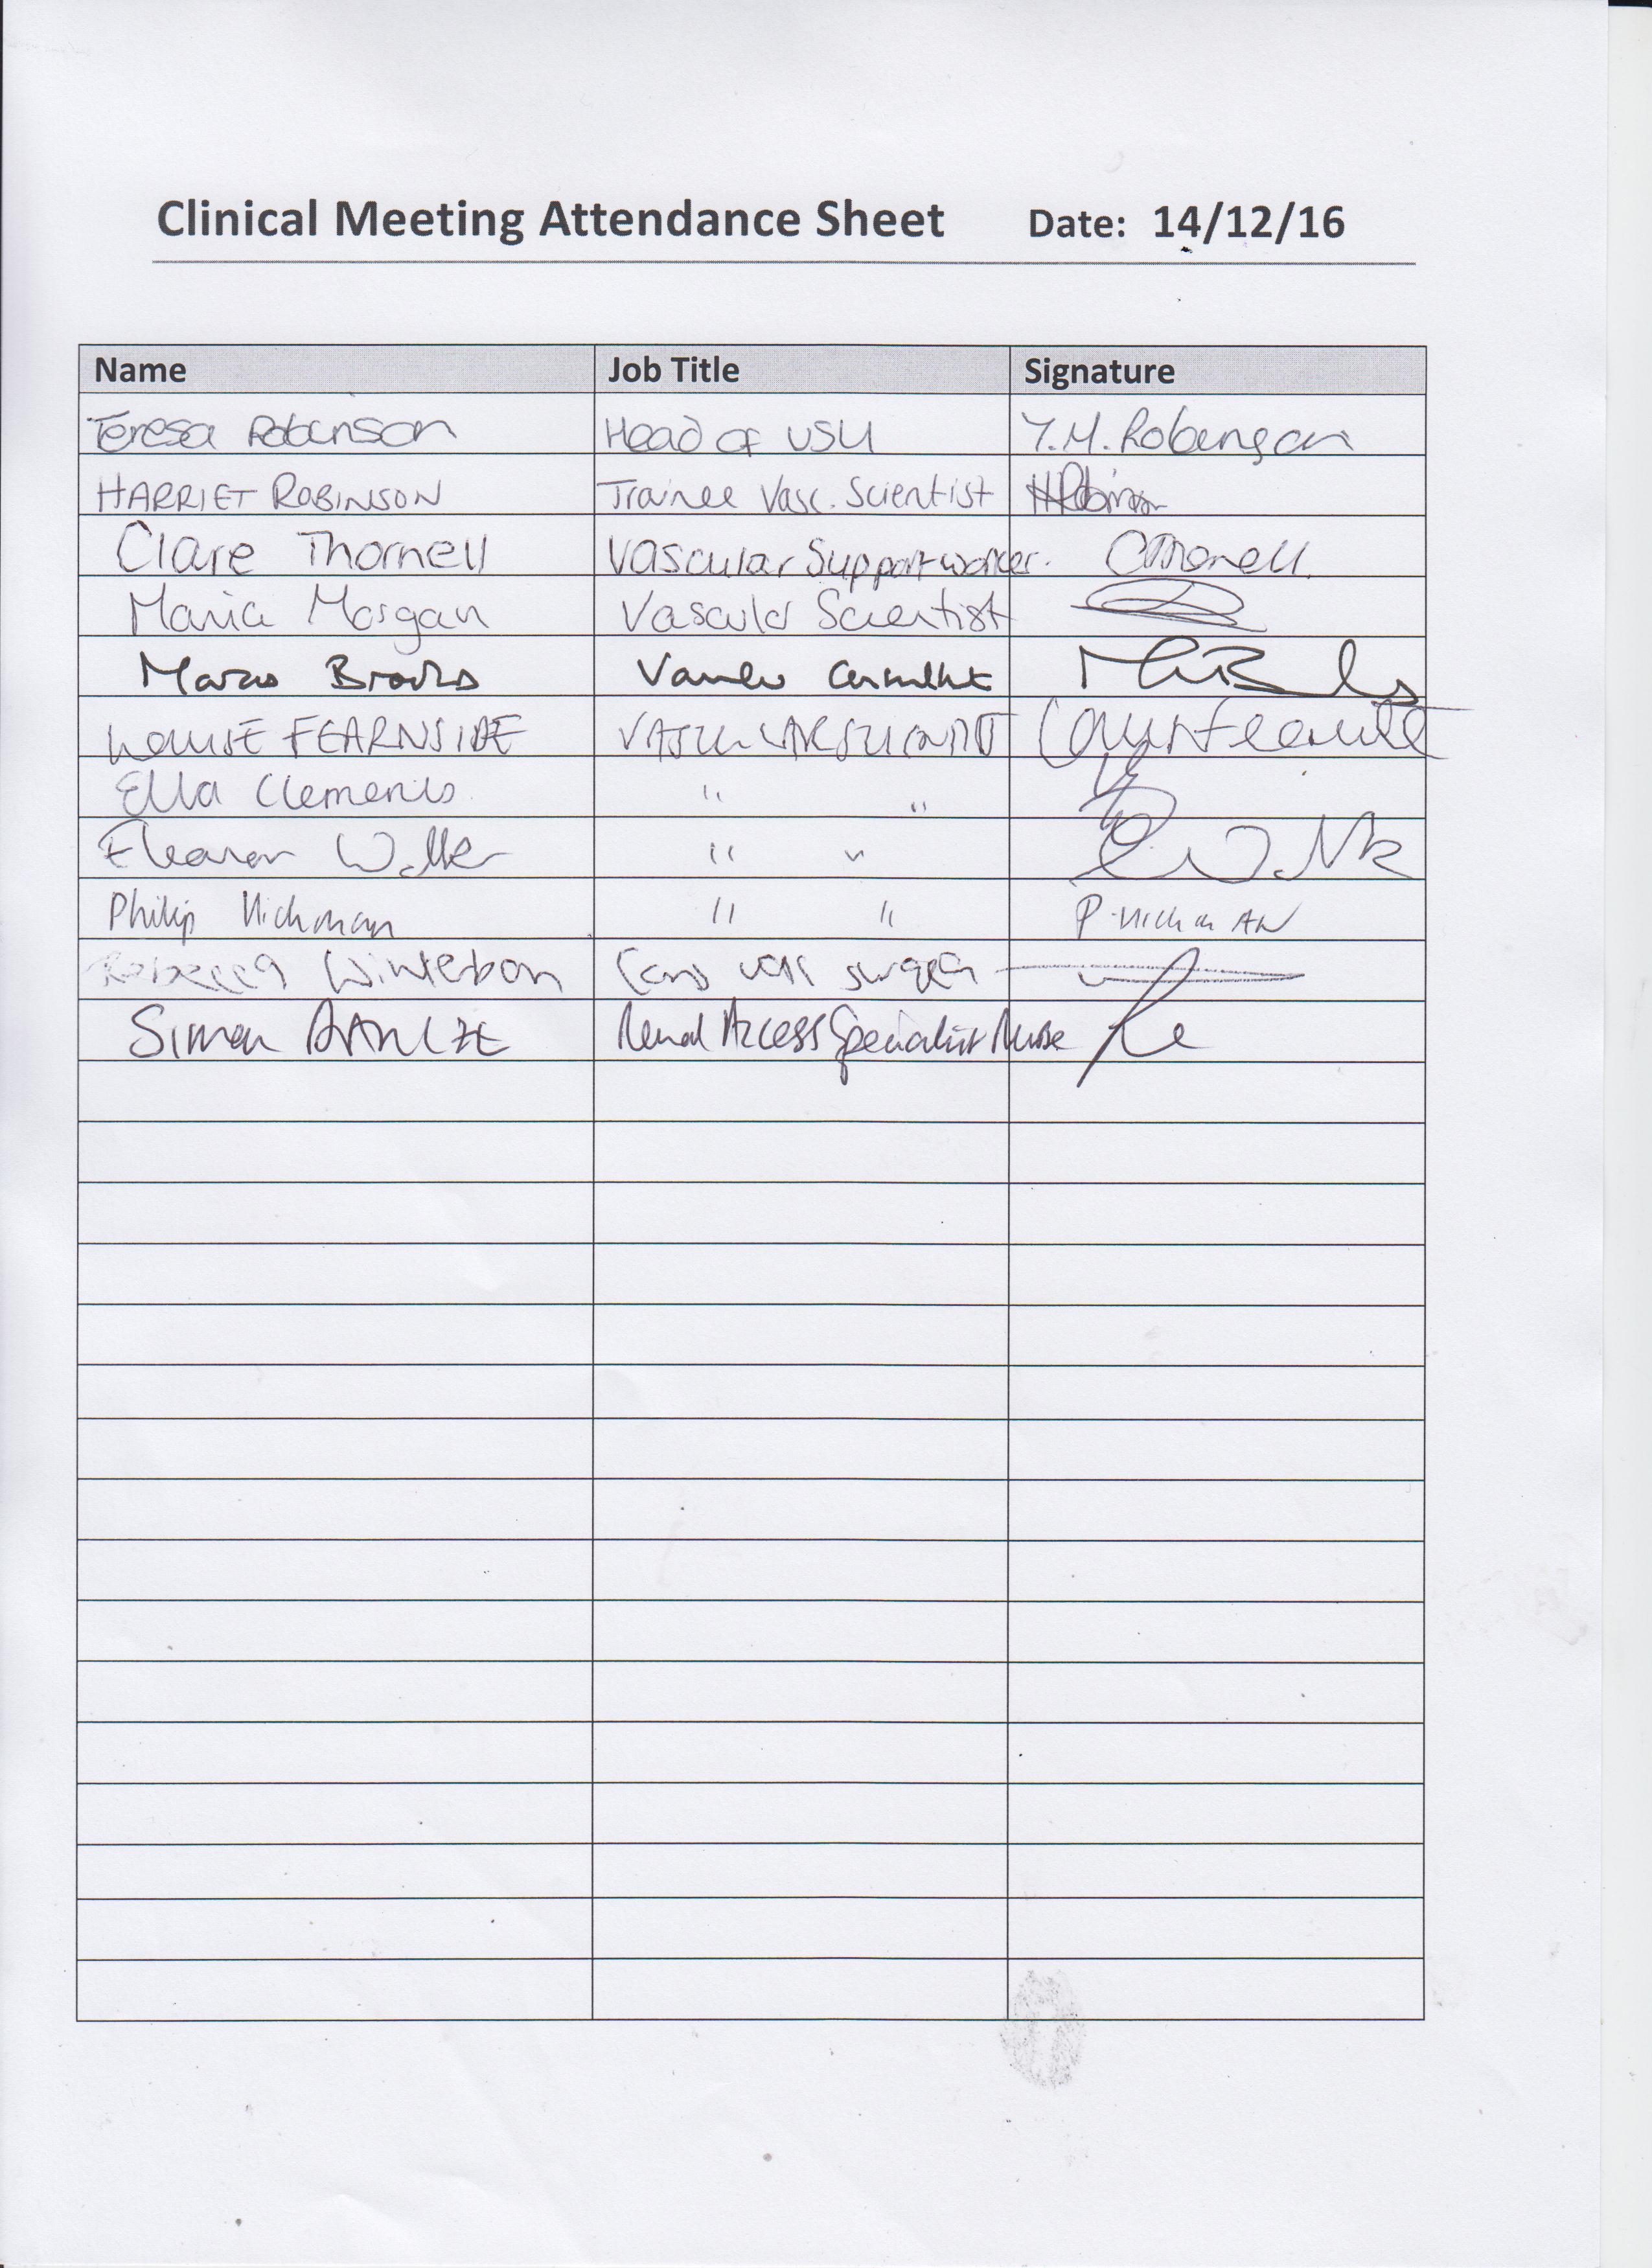 Clinical Meeting Attendance Sheet Date: 14/12/16
Name Job Title Signature
Teresa Robinson Head of VSU T.M. Robinson
HARRIET ROBINSON Trainee Vasc. Scientist HRobinson
Clare Thornell Vascular Support worker. CThornell.
Maria Morgan Vascular Scientist
Marcus Brooks
LOUISE FEARNSIDE VASCULAR SCIENTIST
Ella Clements " "
Eleanor Walker " "
Philip Hickman " " P. Hickman
Rebecca Winterborn Cons vasc surgeon
Simon Renal Access Specialist Nurse